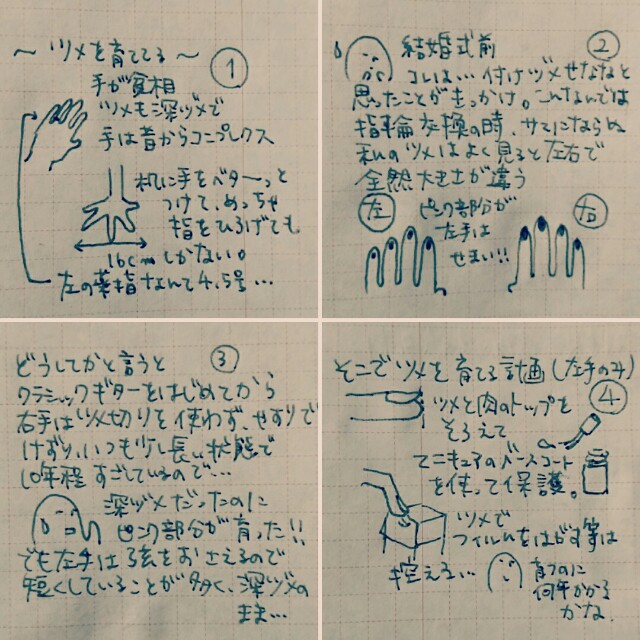 ～ツメを育ててる～
①
手が貧相
ツメも深ヅメで
手は昔からコンプレクス
机に手をベターっと
つけて、めっちゃ
指をひろげても
16cmしかない。
左の薬指なんて4.5号…
②
結婚式前
コレは…付けヅメせななと
思ったことがきっかけ。こんなんでは
指輪交換の時、サマにならぬ
私のツメはよく見ると左右で
全然大きさが違う
左
ピンク部分が
左手は
せまい!!
右
③
どうしてかと言うと
クラシックギターをはじめてから
右手はツメ切りを使わず、やすりで
けずり、いつも少し長い状態で
10年程すごしているので…
深ヅメだったのに
ピンク部分が育った!!
でも左手は弦をおさえるので
短くしていることが多く、深ヅメの
まま…
そこでツメを育てる計画(左手のみ)
④
ツメと肉のトップを
そろえて
マニキュアのベースコート
を使って保護。
ツメで
フィルムをはがす等は
控える…
育つのに
何年かかる
かな